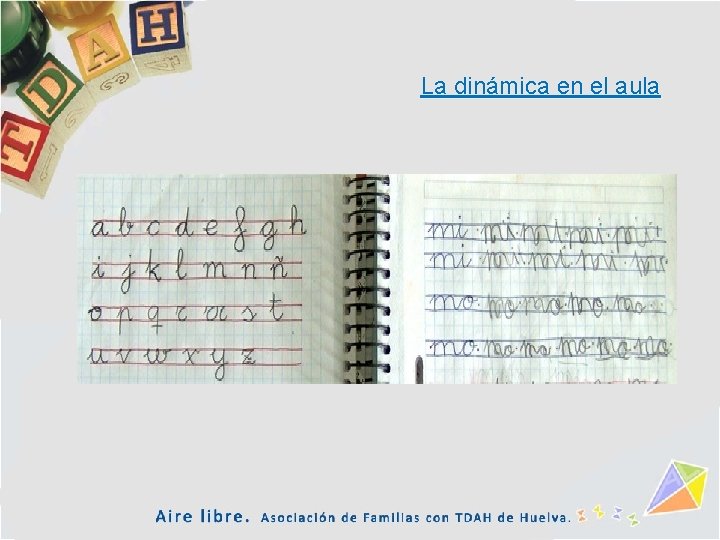 T D A H
La dinámica en el aula
a b c d e f g h
i j k l m n ñ
o p q
s t
u v w x y z
mi mi mi mi mi
mi mi mi mi mi
mo. mo mo mo. mo.
mo. mo mo mo mo mo
Aire libre. Asociación de Familias con TDAH de Huelva.